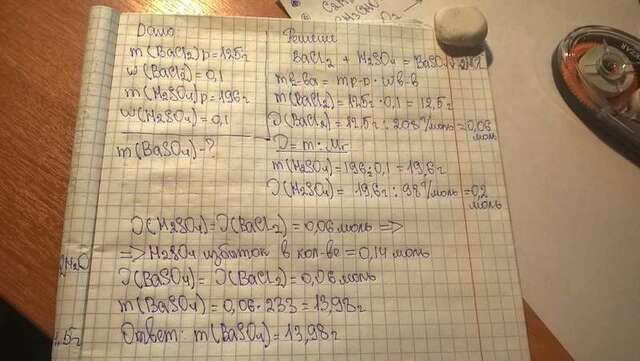 Дано
m(BaCl2)р=125г
w(BaCl2)=0,1
m(H2SO4)р=196г
w(H2SO4)=0,1
m(BaSO4)-?
Решение
BaCl2 + H2SO4 = BaSO4↓+2HCl
mв-ва = mр-р · wв-в
m(BaCl2)=125г·0,1=12,5г
ν(BaCl2)=12,5г:208г/моль=0,06
моль
ν=m:Mr
m(H2SO4)=196·0,1=19,6г
ν(H2SO4)=19,6г:98г/моль=0,2
моль
ν(H2SO4)=ν(BaCl2)=0,06моль =>
=> H2SO4 избыток в кол-ве =0,14 моль
ν(BaSO4)=ν(BaCl2)=0,06 моль
m(BaSO4)=0,06·233=13,98г
Ответ: m(BaSO4)=13,98г
H2O
5г